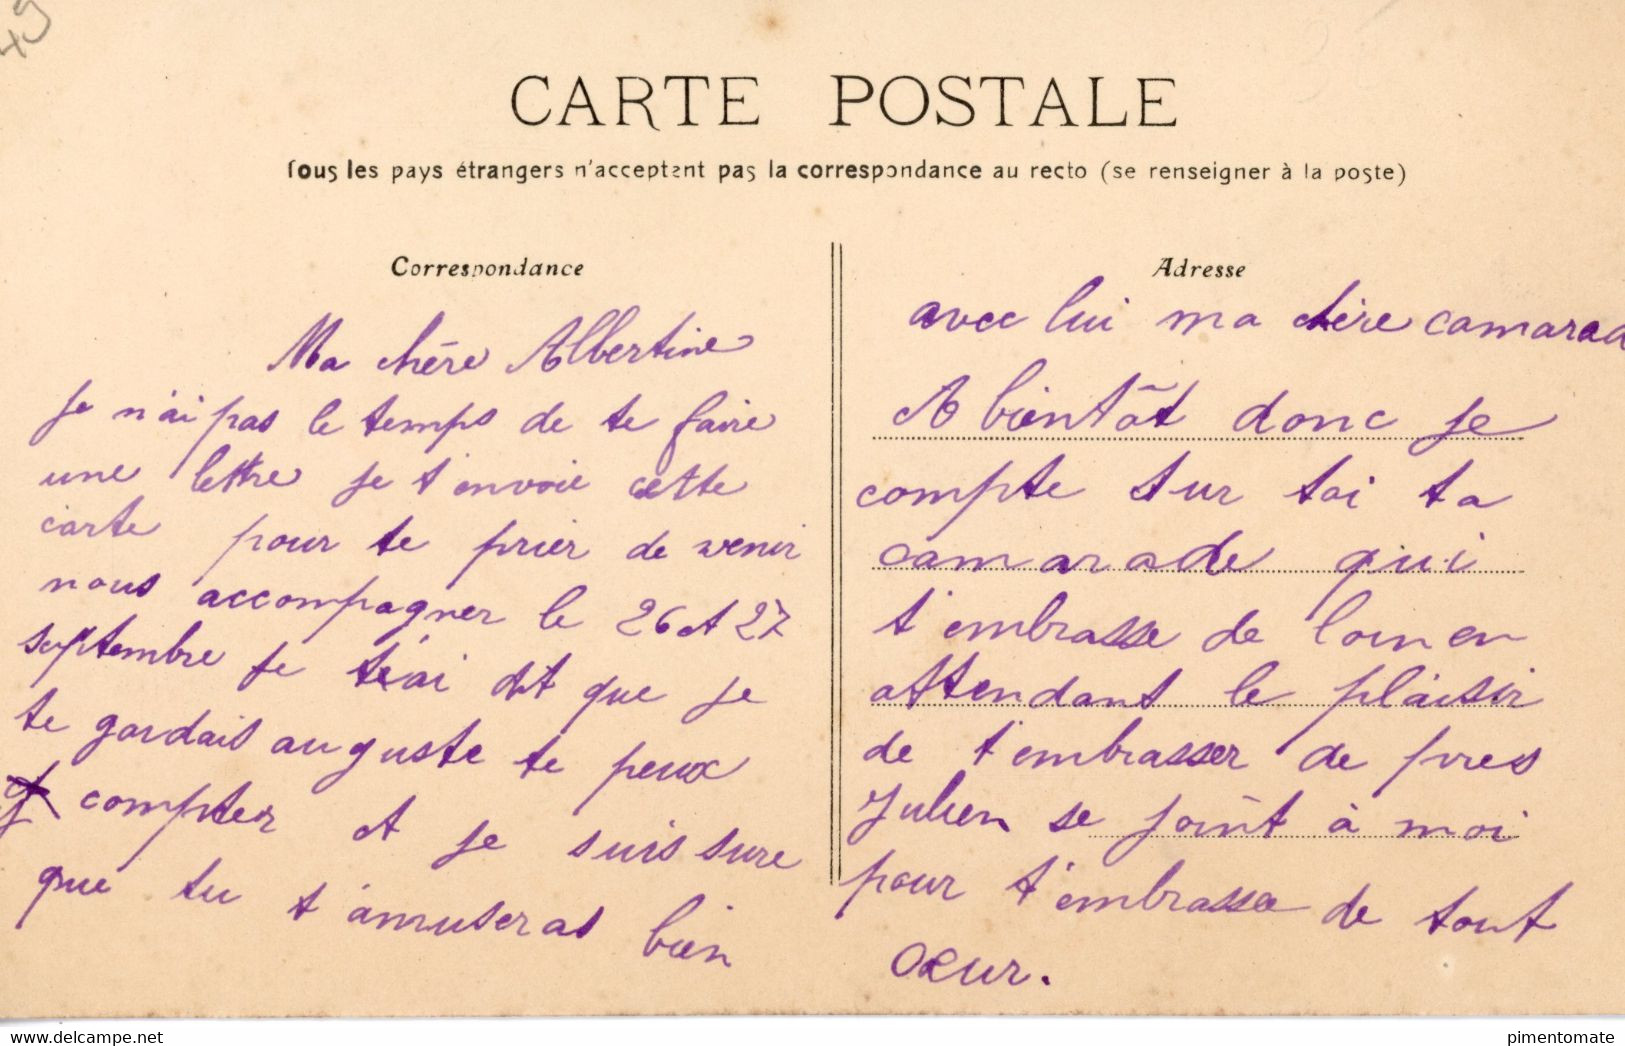 49
CARTE POSTALE
Tous les pays étrangers n'acceptent pas la correspondance au recto (se renseigner à la poste)
Correspondance
Ma chère Albertine
je n'ai pas le temps de te faire
une lettre je t'envoie cette
carte pour te prier de venir
nous accompagner le 26 et 27
septembre je t'ai dit que je
te gardais auguste te peux
compter et je suis sure
que tu t'amuseras bien
Adresse
avec lui ma chère camarad
A bientôt donc je
compte sur toi ta
camarade qui
t'embrasse de loin en
attendant le plaisir
de t'embrasser de pres
Julien se joint à moi
pour t'embrasse de tout
cœur.
www.delcampe.net
pimentomate